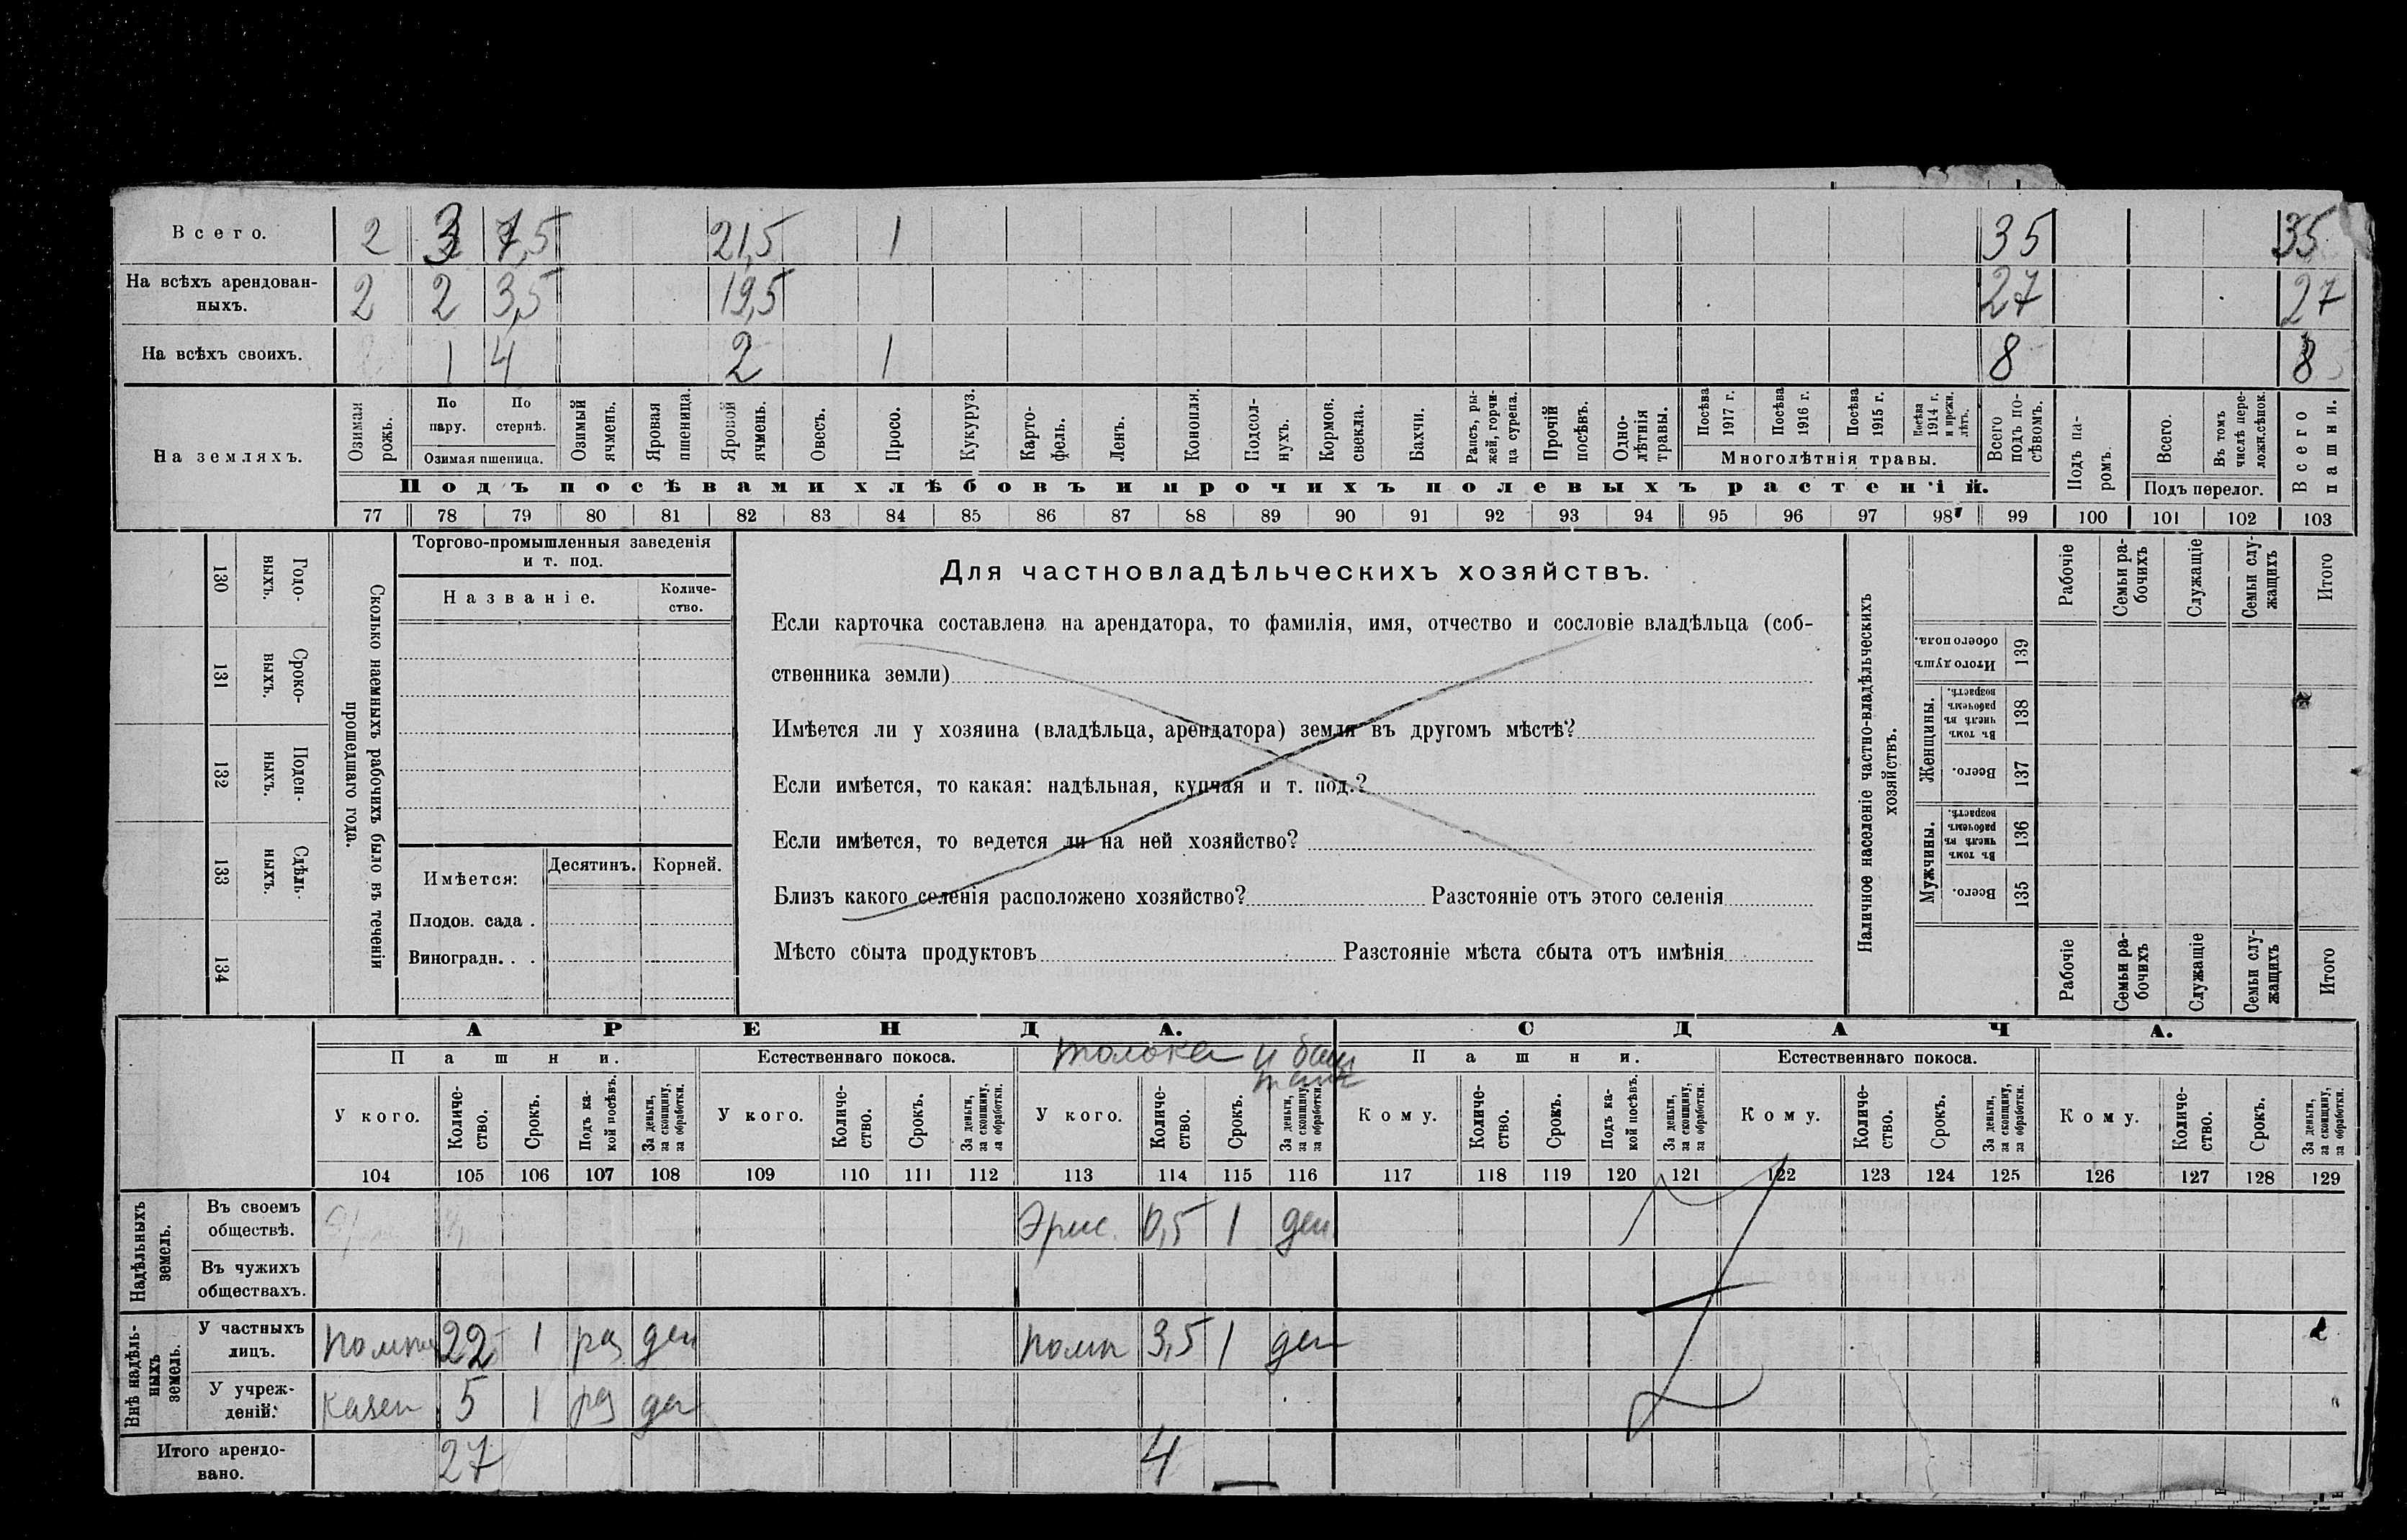 Всего. 2 3 7,5 21,5 1 35 35
На всѣхъ арендован-
ныхъ. 2 2 3,5 19,5 27 27
На всѣхъ своихъ. 1 4 2 1 8 8
На земляхъ.
Озимая рожь.
По пару.
По стернѣ.
Озимая пшеница.
Озимый ячмень.
Яровая пшеница.
Яровой ячмень.
Овесъ.
Просо.
Кукуруз.
Карто-
фель.
Ленъ.
Конопля.
Подсол-
нухъ.
Кормов.
свекла.
Бахчи.
Рапсъ, ры-
жей, горчи-
ца сурепа.
Прочій
посѣвъ.
Одно-
лѣтнія
травы.
Посѣва
1917 г.
Посѣва
1916 г.
Посѣва
1915 г.
Посѣва
1914 г.
и прежн.
лѣтъ.
Многолѣтнія травы.
Всего
подъ по-
сѣвомъ.
Подъ па-
ромъ.
Всего.
Въ томъ
числѣ пере-
ложн.сѣнок.
Подъ перелог.
Всего
пашни.
Подъ посѣвами хлѣбовъ и прочихъ полевыхъ растеній.
77 78 79 80 81 82 83 84 85 86 87 88 89 90 91 92 93 94 95 96 97 98 99 100 101 102 103
130 Годо-
выхъ.
131 Сроко-
выхъ.
132 Поден-
ныхъ.
133 Сдѣль-
ныхъ.
134
Сколько наемныхъ рабочихъ было въ теченіи
прошедшаго года.
Торгово-промышленныя заведенія
и т. под.
Названіе.
Количе-
ство.
Имѣется:
Десятинъ.
Корней.
Плодов. сада .
Виноградн. . .
Для частновладѣльческихъ хозяйствъ.
Если карточка составлена на арендатора, то фамилія, имя, отчество и сословіе владѣльца (соб-
ственника земли)
Имѣется ли у хозяина (владѣльца, арендатора) земля въ другомъ мѣстѣ?
Если имѣется, то какая: надѣльная, купчая и т. под.?
Если имѣется, то ведется ли на ней хозяйство?
Близъ какого селенія расположено хозяйство? Разстояніе отъ этого селенія
Мѣсто сбыта продуктовъ Разстояніе мѣста сбыта отъ имѣнія
Наличное населеніе частно-владѣльческихъ
хозяйствъ.
Рабочіе
Семьи ра-
бочихъ
Служащіе
Семьи слу-
жащихъ
Итого
Итого душъ
обоего пола. 139
Женщины.
Въ томъ
числѣ въ
рабочемъ
возрастѣ. 138
Всего. 137
Мужчины.
Въ томъ
числѣ въ
рабочемъ
возрастѣ. 136
Всего. 135
Рабочіе
Семьи ра-
бочихъ
Служащіе
Семьи слу-
жащихъ
Итого
АРЕНДА.
СДАЧА.
Пашни.
Естественнаго покоса.
толока и
Пашни.
Естественнаго покоса.
У кого.
Количе-
ство.
Срокъ.
Подъ ка-
кой посѣвъ.
За деньги,
за скопщину,
за обработки.
У кого.
Количе-
ство.
Срокъ.
За деньги,
за скопщину,
за обработки.
У кого.
Количе-
ство.
Срокъ.
За деньги,
за скопщину,
за обработки.
Кому.
Количе-
ство.
Срокъ.
Подъ ка-
кой посѣвъ.
За деньги,
за скопщину,
за обработки.
Кому.
Количе-
ство.
Срокъ.
За деньги,
за скопщину,
за обработки.
Кому.
Количе-
ство.
Срокъ.
За деньги,
за скопщину,
за обработки.
104 105 106 107 108 109 110 111 112 113 114 115 116 117 118 119 120 121 122 123 124 125 126 127 128 129
Надѣльныхъ
земель.
Въ своемъ
обществѣ. 0,5 1 ден
Въ чужихъ
обществахъ.
Внѣ надѣль-
ныхъ
земель.
У частныхъ
лицъ. 22 1 раз ден помп 3,5 1 ден
У учреж-
деній. казен 5 1 раз ден
Итого арендо-
вано. 27 4